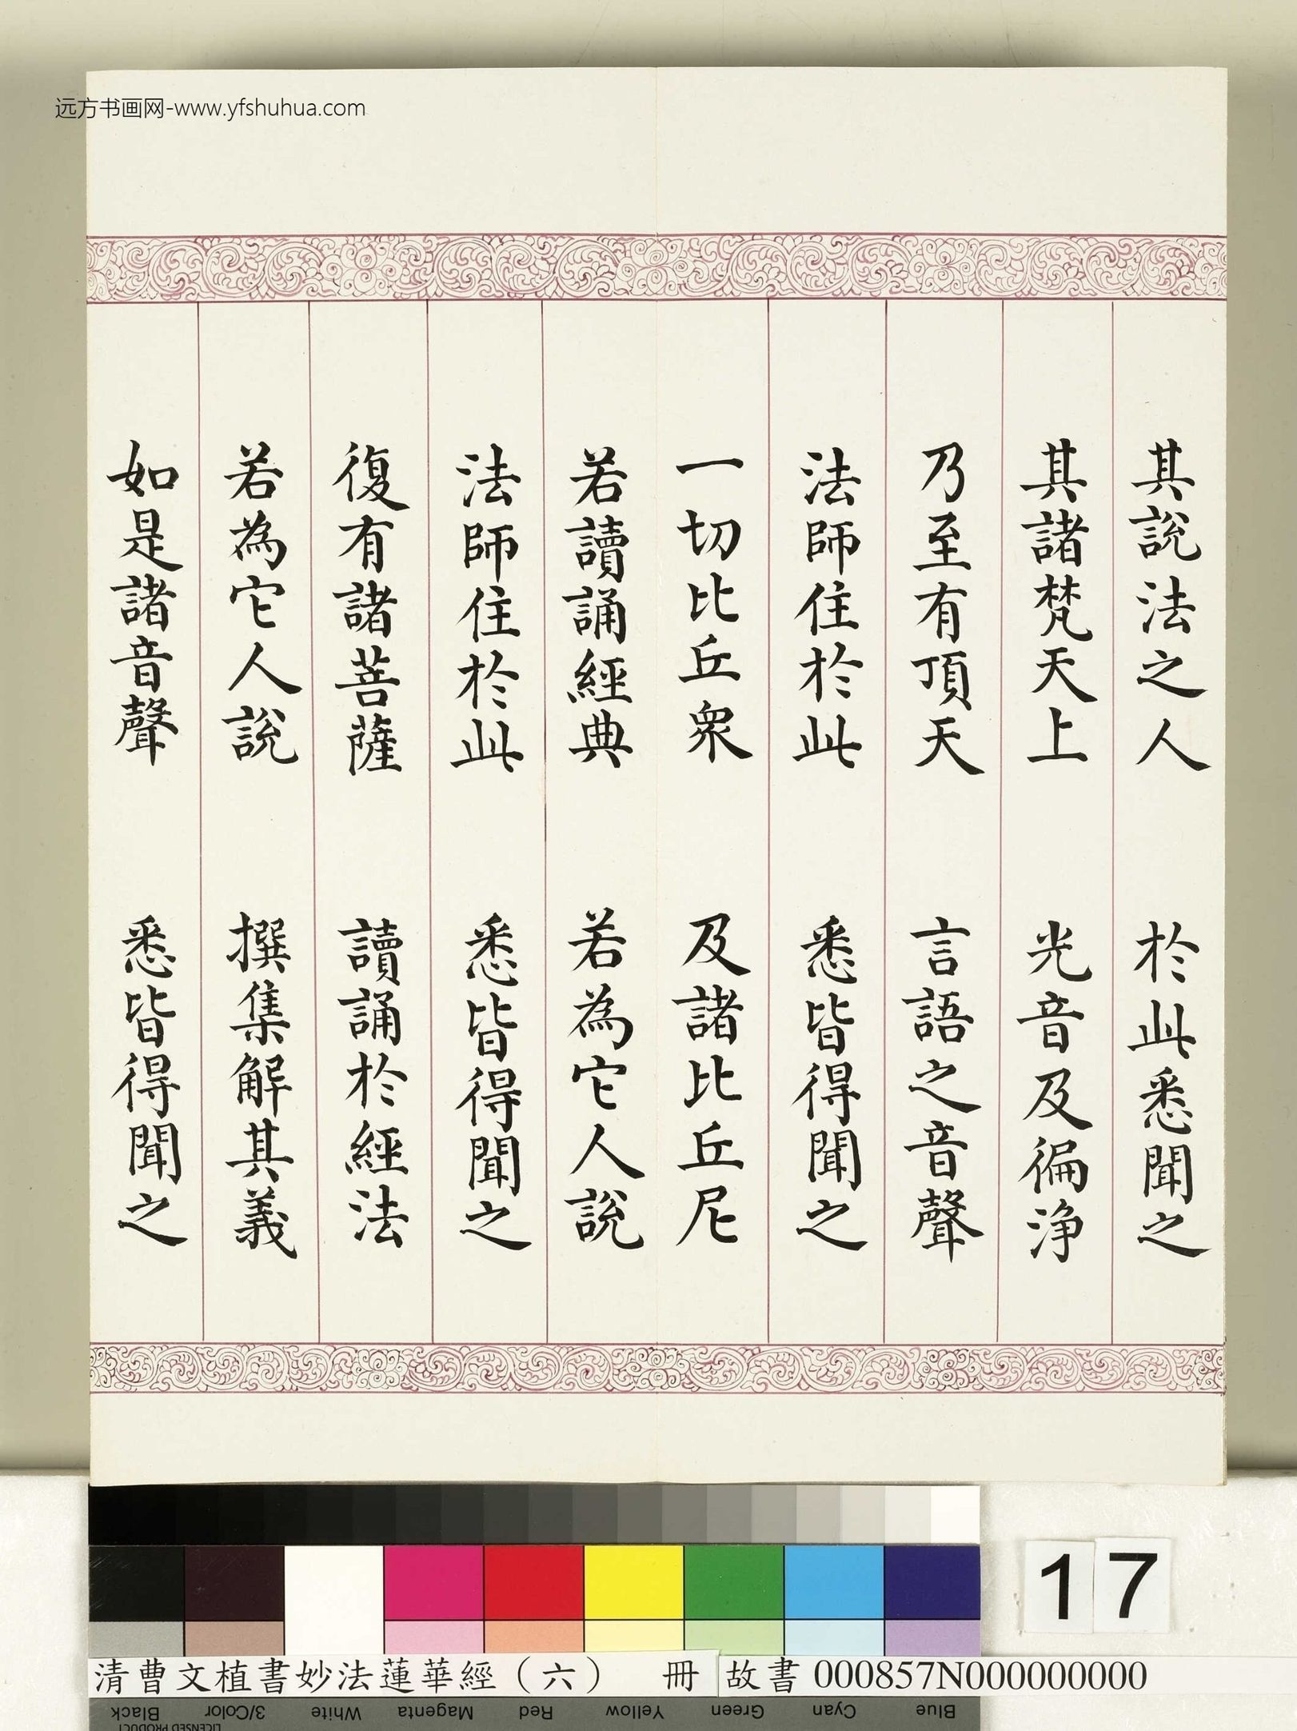 远方书画网-www.yfshuhua.com
其說法之人 於此悉聞之
其諸梵天上 光音及徧淨
乃至有頂天 言語之音聲
法師住於此 悉皆得聞之
一切比丘衆 及諸比丘尼
若讀誦經典 若為它人說
法師住於此 悉皆得聞之
復有諸菩薩 讀誦於經法
若為它人說 撰集解其義
如是諸音聲 悉皆得聞之
17
清曹文植書妙法蓮華經（六） 冊 故書 000857N000000000
Black 3/Color White Magenta Red Yellow Green Cyan Blue
LICENSED PRODUCT